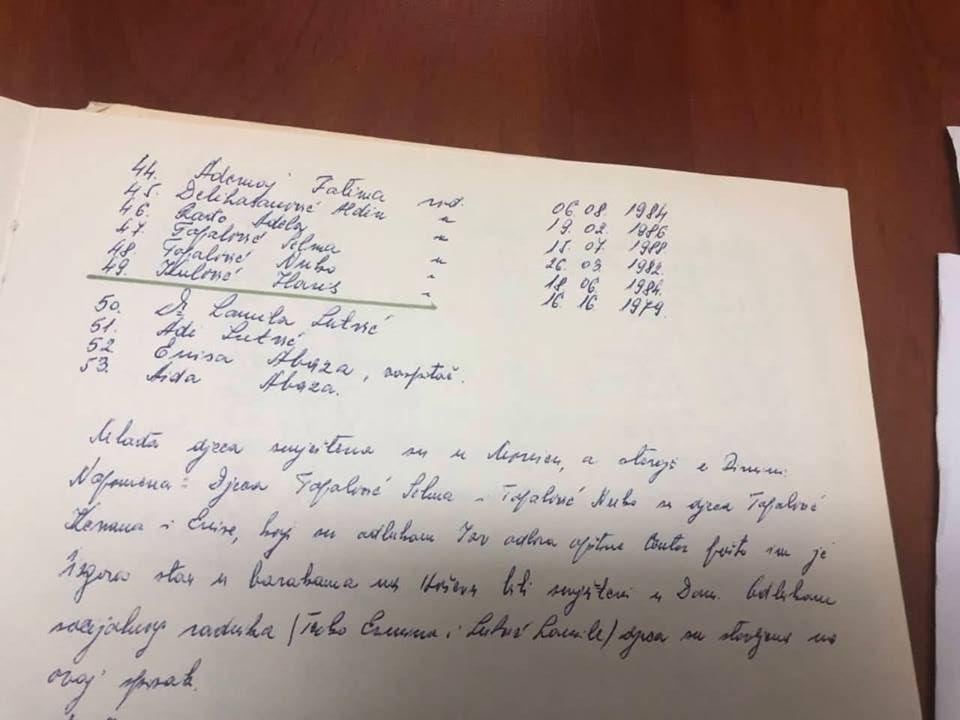 44. Ademaj Fatima rođ. 06. 08. 1984
45. Delihasanović Aldin " 19. 02. 1986
46. Adela " 15. 07. 1988
47. Topalović Selma " 26. 03. 1982.
48. Topalović " 18. 06. 1984.
49. Kulović Haris " 16. 16. 1979.
50. Dž Lamila Lutvić
51. Adi Lutvić
52. Enisa Abaza, vaspitač.
53. Aida Abaza.
Mlađa djeca smještena su u, a starija u
Napomena: Djeca Topalović Selma i Topalović su djeca Topalović
Kenana i Enise, koji su odlukom Izv odbora opštine Centar pošto im je
izgorio stan u barakama na bili smješteni u Dom. Odlukom
socijalnog radnika (i Lutvić) djeca su stavljena na
ovaj spisak.